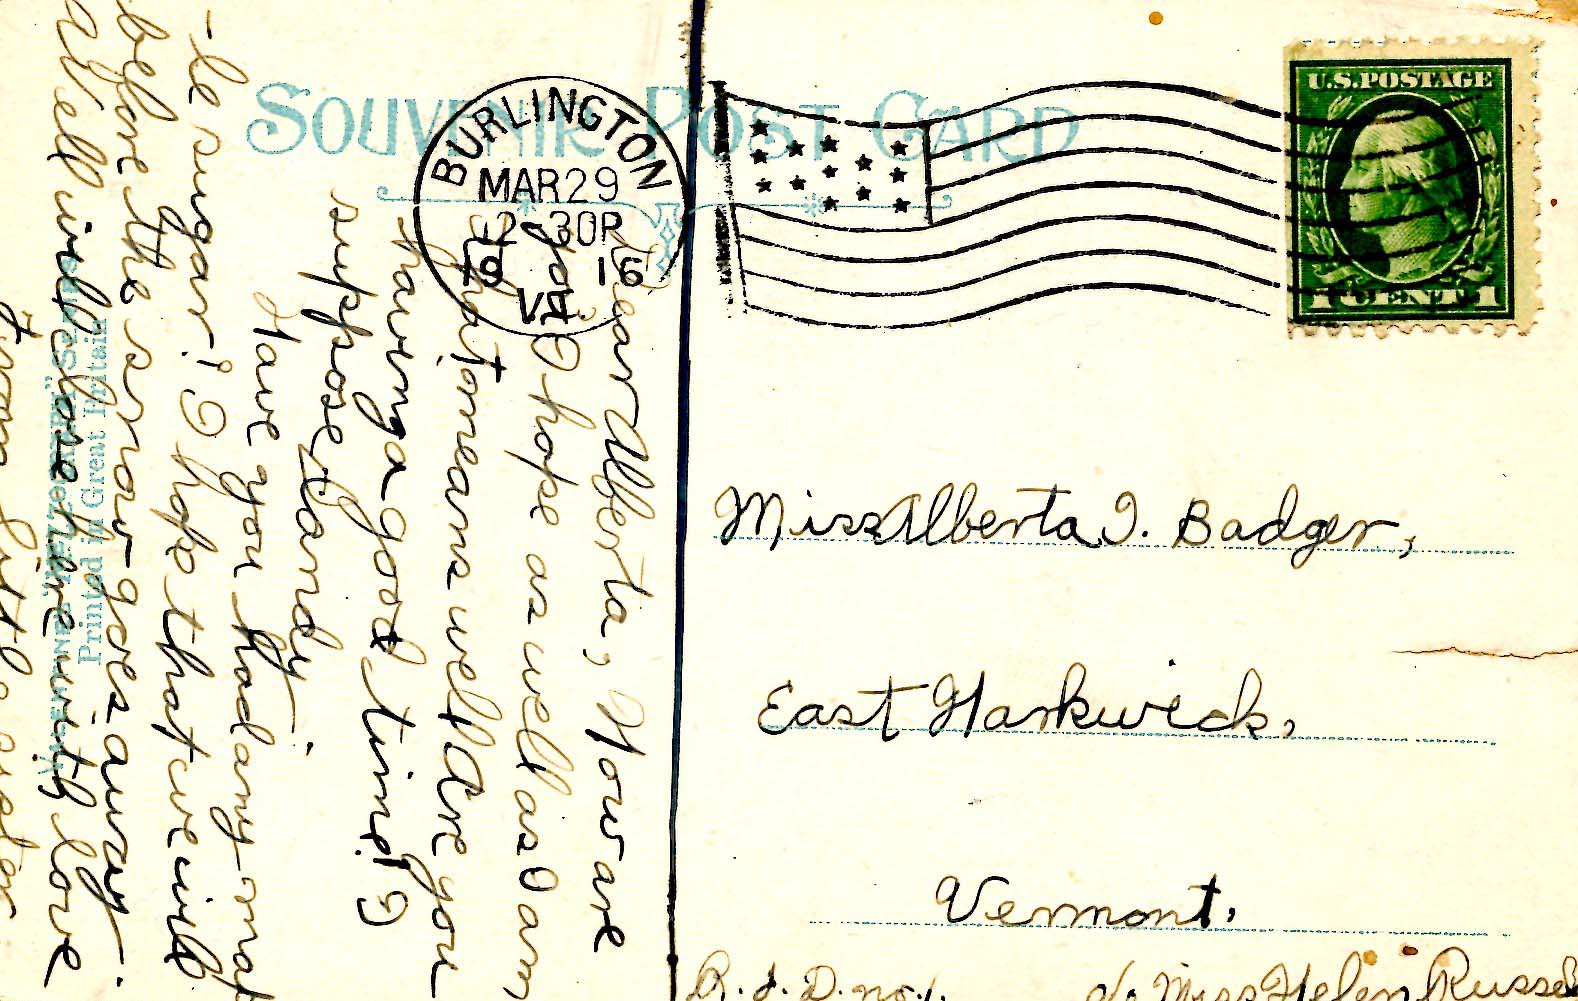 SOUVENIR POST CARD
BURLINGTON
MAR 29
2-30P
1916
VT.
U.S.POSTAGE
1 CENT 1
Dear Alberta, How are
you? I hope as well as I am
that means well. Are you
having a good time! I
suppose
Have you had any map
-le sugar! I hope that we will
before the snow goes away.
Well will close here with love
from Little sister
Printed in Great Britain
Miss Alberta I. Badger,
East Hardwick,
Vermont.
R.F.D. no. 1.
c/o Miss Helen Russell